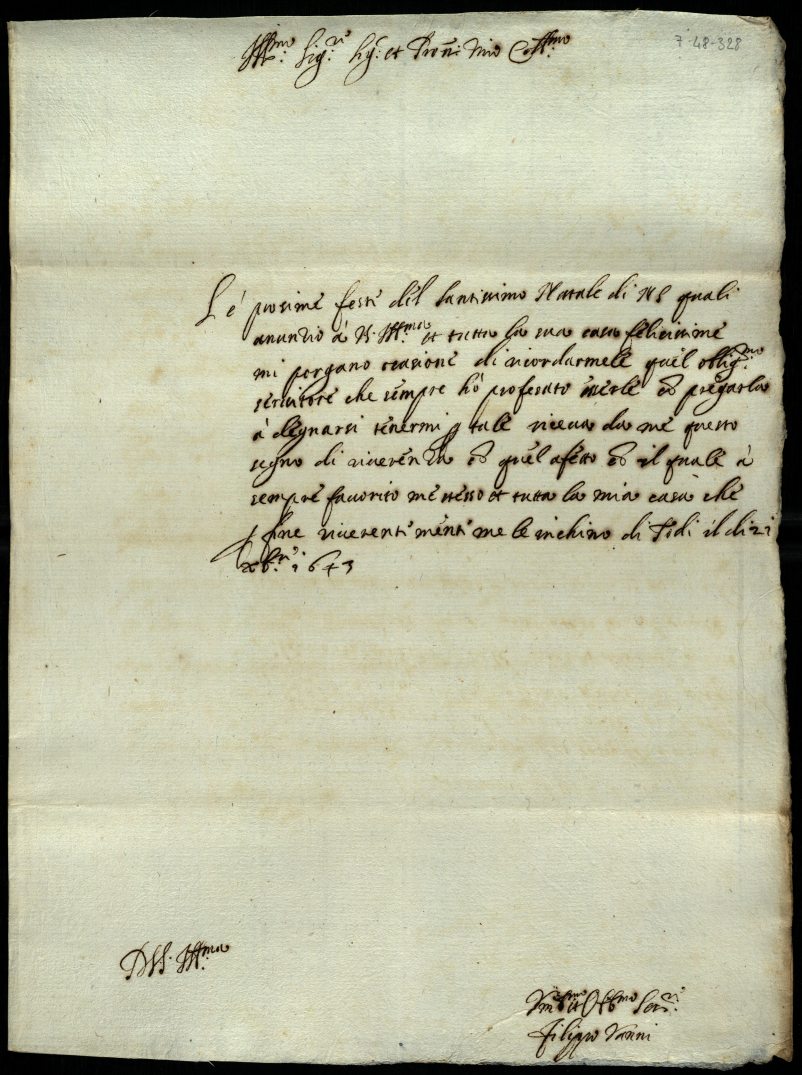 Ill.mo Sig.re Sig.r et Pron: mio Coll.mo
7-48-328
Le prosime feste del santissimo Natale di NS quali
anunzio à V.S. Ill.ma et tutta la sua casa felicissime
mi porgano ocasione di ricordarmele quel oblig.mo
servitore che sempre hò profesato eserle et pregarla
à degnarsi tenermi p tale riceva da me questo
segno di riverenza con quel afetto con il quale à
sempre favorito me stesso et tutta la mia casa che
p fine riverentimenti me le inchino di Todi il di 21
xb.re 1643
D.V.S. Ill.ma
et Ob.mo Ser.re
Filippo Vanni